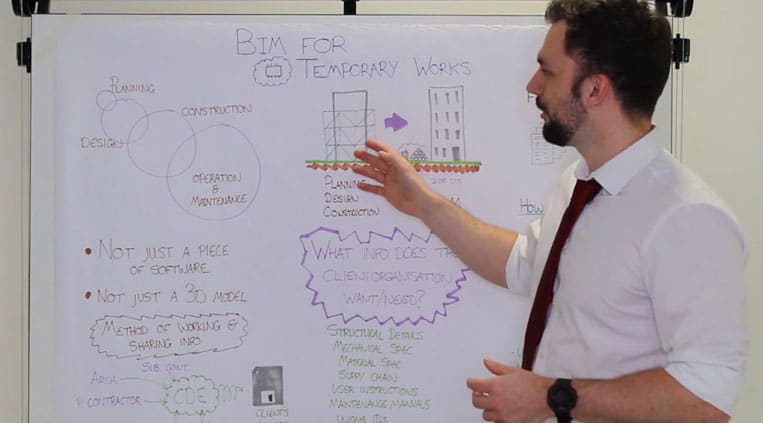 BIM FOR
TEMPORARY WORKS
PLANNING
CONSTRUCTION
DESIGN
OPERATION
&
MAINTENANCE
PLANNING
DESIGN
CONSTRUCTION
• NOT JUST A PIECE
OF SOFTWARE
• NOT JUST A 3D MODEL
METHOD OF WORKING &
SHARING INFO
SUB. CONT.
ARCH.
CONTRACTOR
CDE
CLIENT'S
WHAT INFO DOES THE
CLIENT ORGANISATION
WANT/NEED?
STRUCTURAL DETAILS
MECHANICAL SPEC
MATERIAL SPEC
SUPPY CHAIN
USER INSTRUCTIONS
MAINTENANCE MANUALS
UNIQUE IDs
HOW